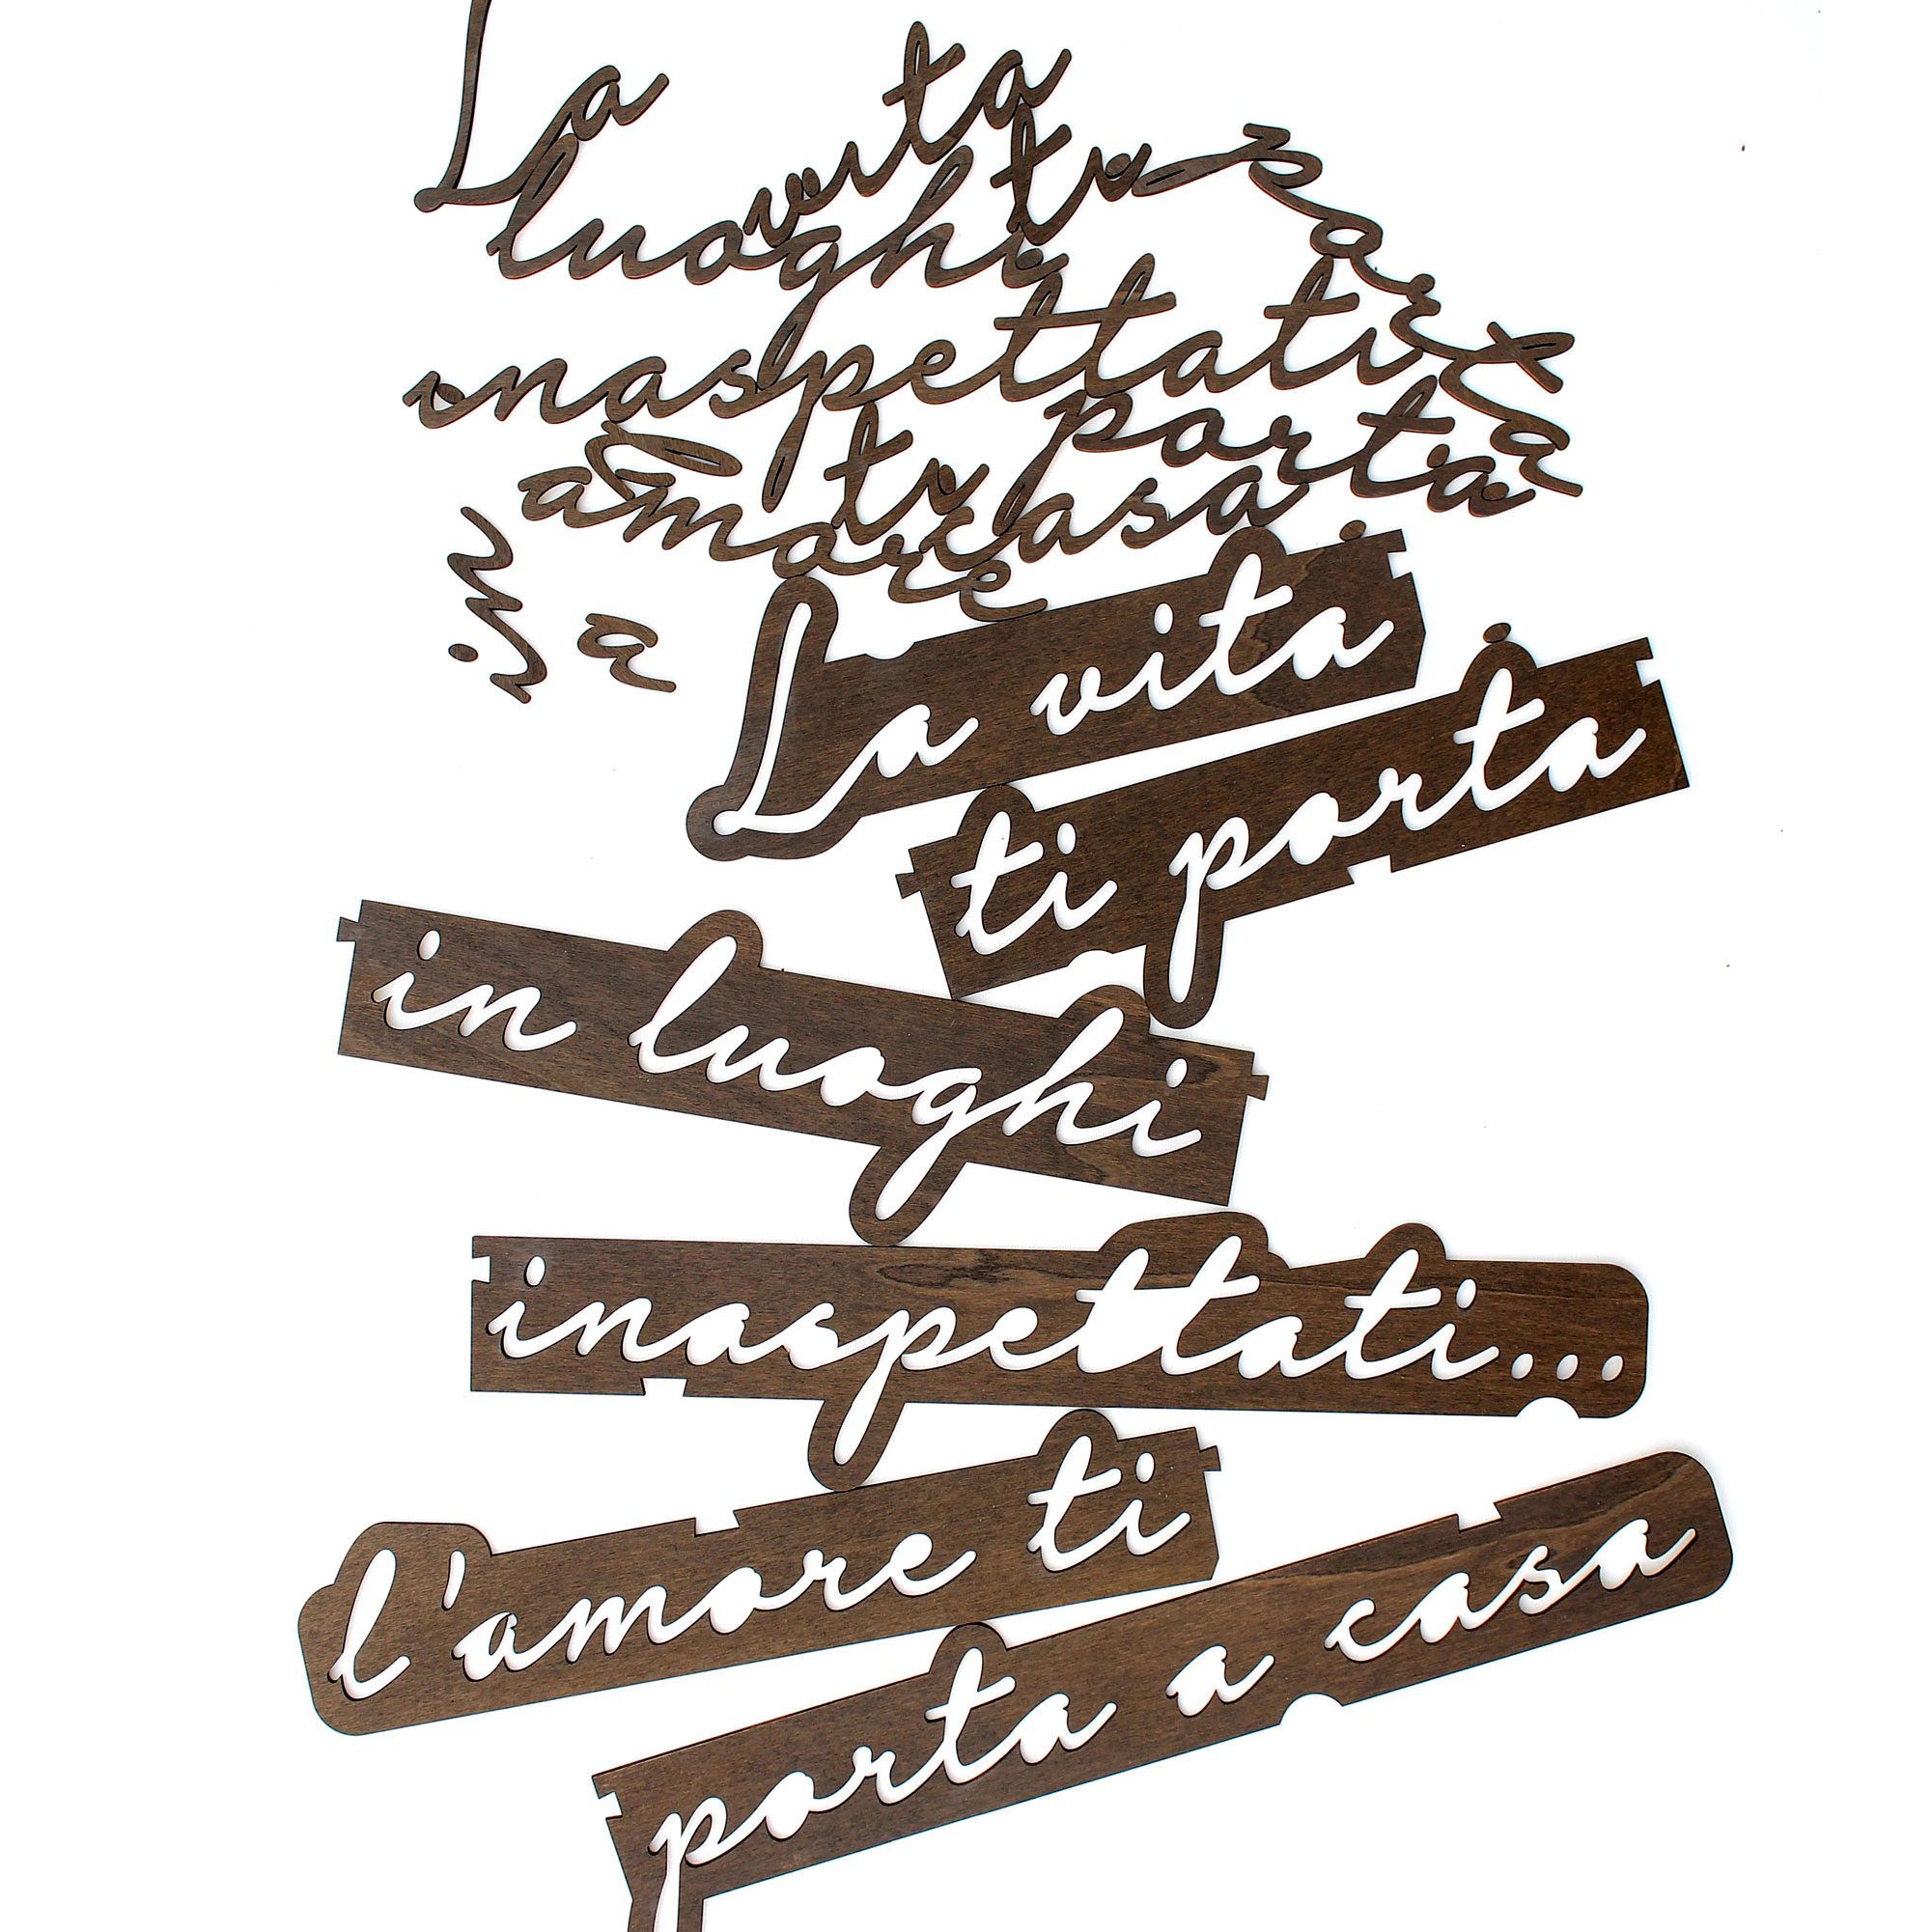 La vita ti porta
luoghi
inaspettati
porta
ti
amore casa
in a
La vita
ti porta
in luoghi
inaspettati...
l'amore ti
porta a casa